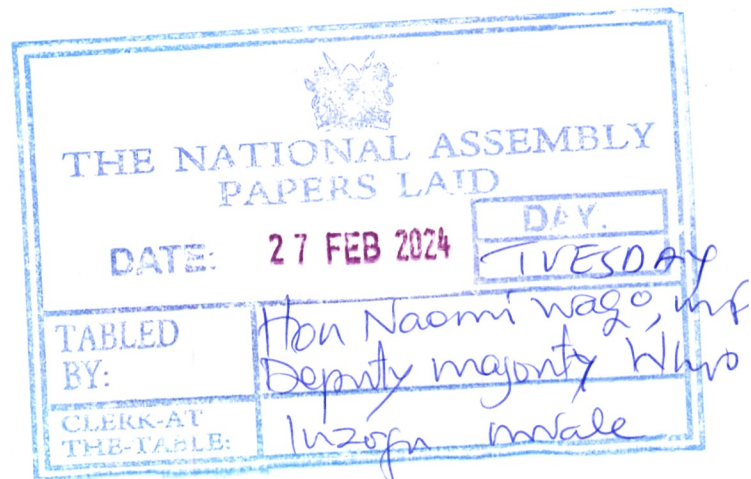 THE NATIONAL ASSEMBLY
PAPERS LAID
DAY.
DATE: 27 FEB 2024 TUESDAY
TABLED
BY:
Hon Naomi Waqo, MP
Deputy Majority Whip
CLERK-AT
THE-TABLE:
Inzofu Mwale